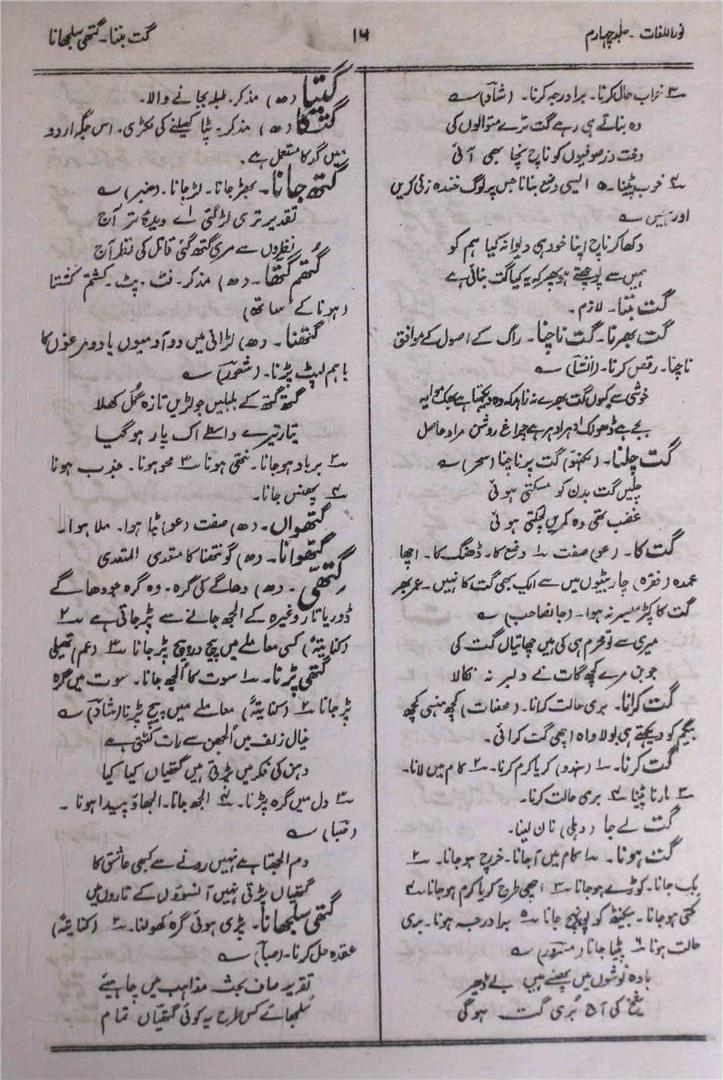 نور اللغات ۔ جلد چہارم
۱۶
گت بننا ۔ گتھی سلجھانا
۳ خراب حال کرنا۔ برا درجہ کرنا۔ (شادؔ) ؎
وہ بناتے ہی رہے گت ترے متوالوں کی
دخت رز صوفیوں کو ناچ نچا بھی آئی
۴ خوب پیٹنا۔ ۵ ایسی وضع بنانا جس پر لوگ خندہ زنی کریں
اور ہنسیں ؎
دکھا کر ناچ اپنا خود ہی دیوانہ کیا ہم کو
ہمیں سے پوچھتے ہو پھر کہ یہ کیا گت بنائی ہے
گت بننا۔ لازم۔
گت بھرنا۔ گت ناچنا۔ راگ کے اصول کے موافق
ناچنا۔ رقص کرنا۔ (انشاؔ) ؎
خوشی سے کیوں گت بھرے نہ زاہد کہ وہ
بجے ہے ڈھولک اُدھر ادھر ہے چراغ روشن مراد حاصل
گت چلنا۔ (لکھنؤ) گت پر ناچنا (سحر) ؎
چلیں گت بدن کو مسکتی ہوئی
غضب تھی وہ کمریں لچکتی ہوئی
گت کا۔ (عو) صفت ۱ وضع کا۔ ڈھنگ کا۔ اچھا
عمدہ (فقرہ) چار بیٹیوں میں سے ایک بھی گت کا نہیں۔ عمر بھر
گت کا کپڑا میسر نہ ہوا۔ (جانصاحب) ؎
میری سے تو محرم ہی کی ہیں چھاتیاں گت کی
جوبن مرے کچھ گات نے دلبر نہ نکالا
گت کرانا۔ بری حالت کرانا۔ (صفات) کچھ ہنسی کچھ
بیگم کو دیکھتے ہی بولا واہ اچھی گت کرائی۔
گت کرنا۔ ۱ (ہندو) کریا کرم کرنا۔ ۲ کام میں لانا۔
۳ مارنا پیٹنا ۴ بری حالت کرنا۔
گت لے جا (دہلی) تان لینا۔
گت ہونا۔ ۱ کام میں آجانا۔ خرچ ہو جانا۔ ۲
بک جانا۔ کوڑے ہو جانا ۳ اچھی طرح کریا کرم ہو جانا ۴
مکتی ہو جانا۔ بیکنٹھ کو پہونچ جانا ۵ برا درجہ ہونا۔ بری
حالت ہونا ۶ پٹیا جانا ؎
بادہ نوشوں میں پھنسے ہیں بے ڈھر
شیخ کی آج بُری گت ہو گی
گتیا (ھ) مذکر۔ طبلہ بجانے والا۔
گتکا (ھ) مذکر۔ پٹا کھیلنے کی لکڑی۔ اس جگہ اردو
میں گدکا مستعمل ہے۔
گتھ جانا۔ بھڑ جانا۔ لڑ جانا۔ ؎
تقدیر تری لڑ گئی اے دیدۂ تر آج
نظروں سے مری گتھ گئی قاتل کی نظر آج
گتھم گتھا۔ (ھ) مذکر۔ لٹ۔ پٹ۔ کشتم کشتا
(ہونا کے ساتھ)
گتھنا۔ (ھ) لڑائی میں دو آدمیوں یا دو مرغوں کا
باہم لپٹ پڑنا۔ (شعورؔ) ؎
گتھ گتھ کے بلبلیں جو لڑیں تازہ گل کھلا
تیار تیرے واسطے اک ہار ہو گیا
۲ برباد ہو جانا۔ نتھی ہونا ۳ محو ہونا۔ جذب ہونا
۴ پھنس جانا۔
گتھواں۔ (ھ) صفت (عو) بٹا ہوا۔ ملا ہوا۔
گتھوانا۔ (ھ) گونتھنا کا متعدی المتعدی
گتھی۔ (ھ) دھاگے کی گرہ۔ وہ گرہ جو دھاگے
ڈور یا تار وغیرہ کے الجھ جانے سے پڑ جاتی ہے ۲
(کنایتہً) کسی معاملے میں پیچ در پیچ پڑ جانا ۳ (عم) تھیلی
گتھی پڑنا۔ ۱ سوت کا اُلجھ جانا۔ سوت میں گرہ
پڑ جانا ۲ (کنایتہً) معاملے میں پیچ پڑنا (شادؔ) ؎
خیال زلف میں اُلجھن سے رات کٹتی ہے
دہن کی فکر میں پڑتی ہیں گتھیاں کیا کیا
۳ دل میں گرہ پڑنا۔ ۴ الجھ جانا۔ الجھاؤ پیدا ہونا۔
(صباؔ) ؎
دم الجھتا ہے نہیں رونے سے کبھی عاشق کا
گتھیاں پڑتی نہیں آنسوؤں کے تاروں میں
گتھی سلجھانا۔ پڑی ہوئی گرہ کھولنا۔ ۲ (کنایتہً)
عقدہ حل کرنا۔ (صباؔ) ؎
تقریر صاف بحث مذاہب میں چاہیے
سُلجھائے کس طرح یہ کوئی گتھیاں تمام